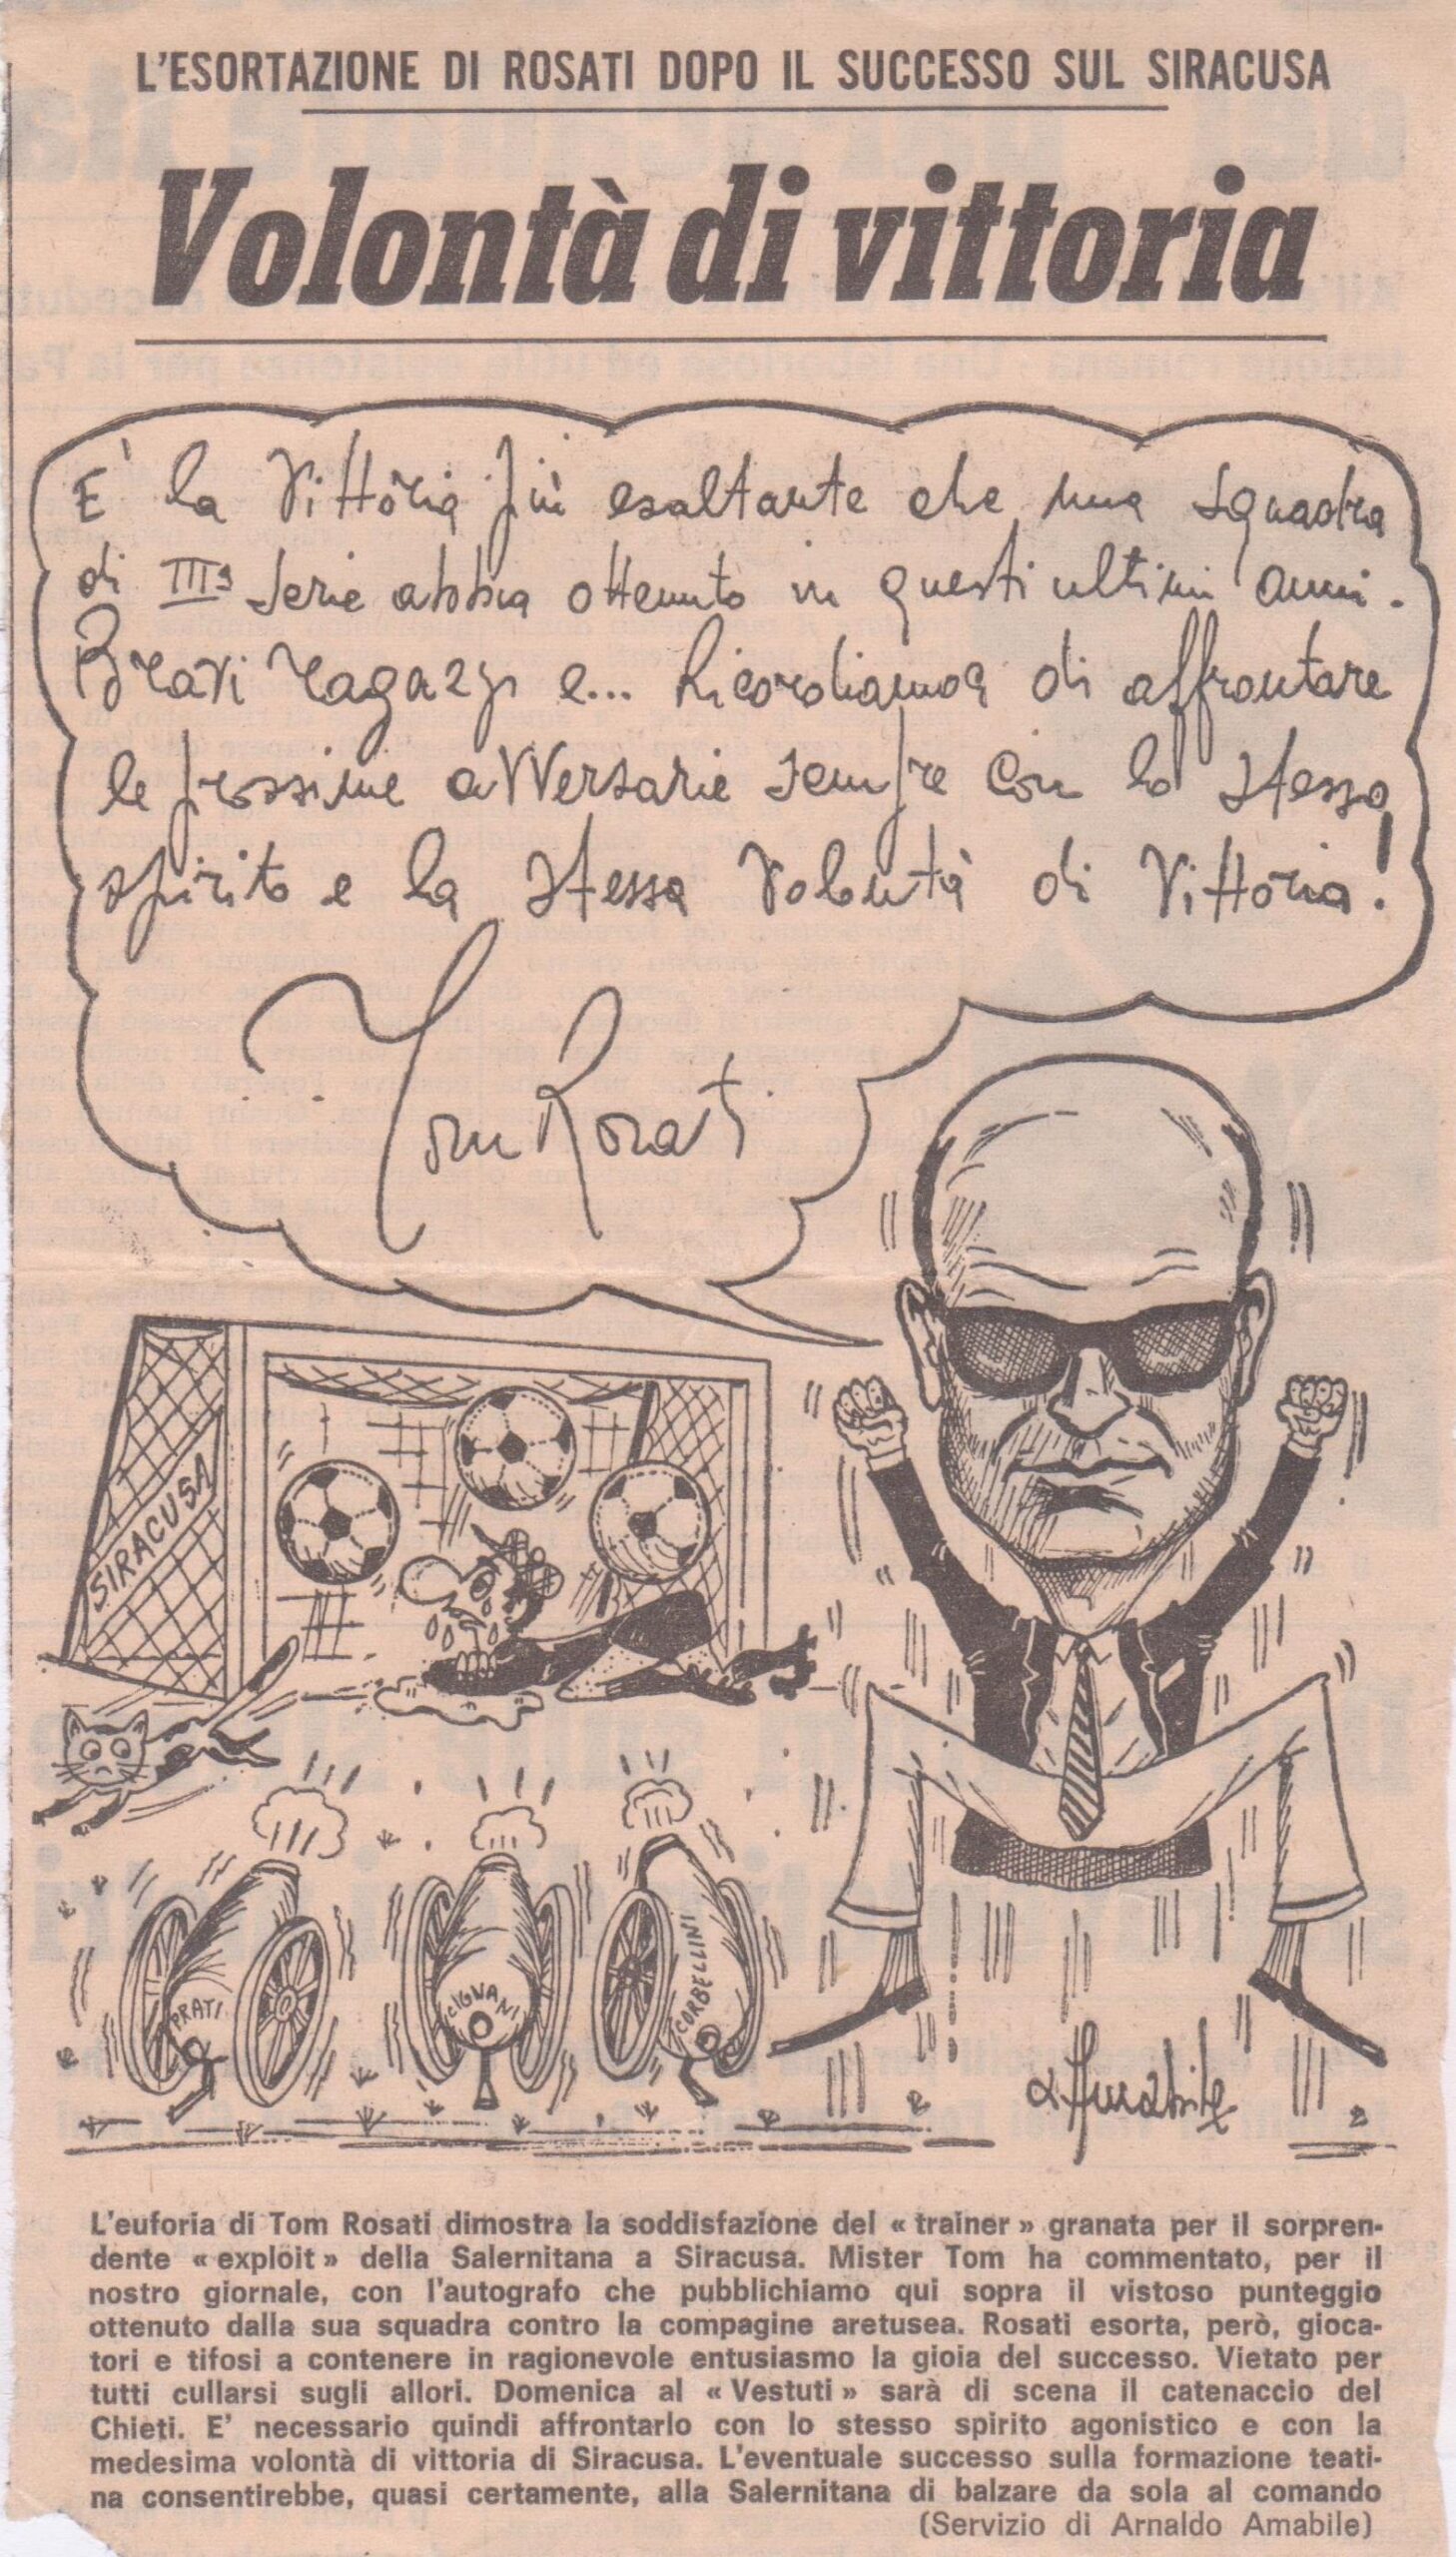 L'ESORTAZIONE DI ROSATI DOPO IL SUCCESSO SUL SIRACUSA
Volontà di vittoria
E' la Vittoria più esaltante che una squadra
di IIIª Serie abbia ottenuto in questi ultimi anni.
Bravi ragazzi e... Ricordiamoci di affrontare
le prossime avversarie sempre con lo stesso
spirito e la stessa Volontà di Vittoria!
Tom Rosati
SIRACUSA
PRATI
CIGNANI
CORBELLINI
Amabile
L'euforia di Tom Rosati dimostra la soddisfazione del « trainer » granata per il sorpren-
dente « exploit » della Salernitana a Siracusa. Mister Tom ha commentato, per il
nostro giornale, con l'autografo che pubblichiamo qui sopra il vistoso punteggio
ottenuto dalla sua squadra contro la compagine aretusea. Rosati esorta, però, gioca-
tori e tifosi a contenere in ragionevole entusiasmo la gioia del successo. Vietato per
tutti cullarsi sugli allori. Domenica al « Vestuti » sarà di scena il catenaccio del
Chieti. E' necessario quindi affrontarlo con lo stesso spirito agonistico e con la
medesima volontà di vittoria di Siracusa. L'eventuale successo sulla formazione teati-
na consentirebbe, quasi certamente, alla Salernitana di balzare da sola al comando
(Servizio di Arnaldo Amabile)